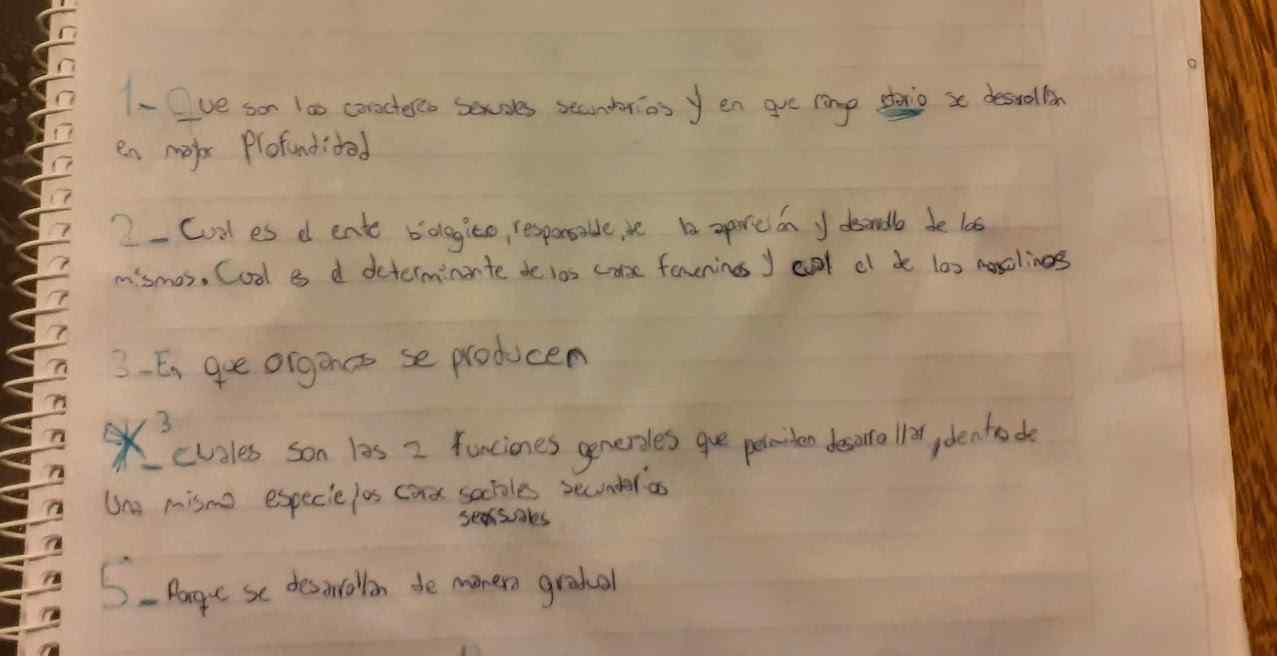 1- Que son los caracteres sexuales secundarios y en que rango etario se desrollan
en mayor Profundidad
2- Cual es el ente biologico, responsable, de la aparición y desarrollo de los
mismos. Cual es el determinante de los carac femeninos y cual el de los masculinos
3-En que organos se producen
3 - cuales son las 2 funciones generales que permiten desarrollar, dentro de
Una misma especie los carac sociales secundarios
sexsuales
5- Porque se desarrollan de manera gradual